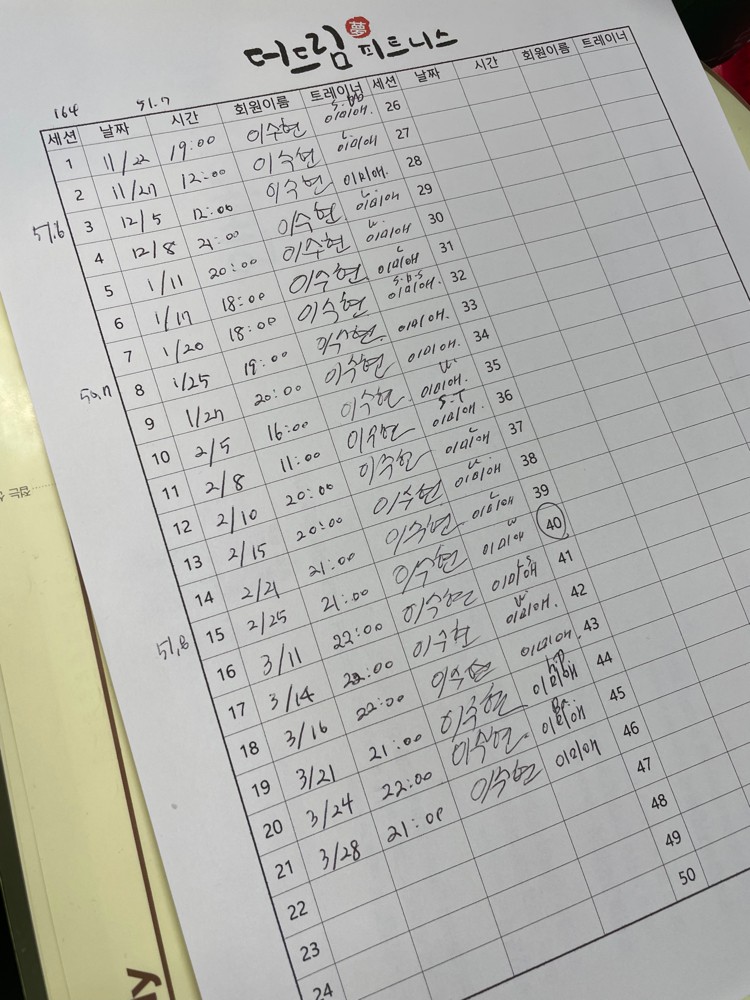 더드림 夢 피트니스
164 51.7
세션 날짜 시간 회원이름 트레이너 세션 날짜 시간 회원이름 트레이너
1 11/22 19:00 이수현 이미애. 26
2 11/27 12:00 이수현 이미애 27
51.6 3 12/5 12:00 이수현 이미애. 28
4 12/8 21:00 이수현 이미애 29
5 1/11 20:00 이수현 이미애 30
6 1/17 18:00 이수현 이미애 31
7 1/20 18:00 이수현 이미애. 32
50.7 8 1/25 19:00 이수현 이미애. 33
9 1/27 20:00 이수현 이미애. 34
10 2/5 16:00 이수현 이미애. 35
11 2/8 11:00 이수현 이미애. 36
12 2/10 20:00 이수현 이미애 37
13 2/15 20:00 이수현 이미애 38
14 2/21 21:00 이수현 이미애 39
51.8 15 2/25 21:00 이수현 이미애 40
16 3/11 22:00 이수현 이미애 41
17 3/14 22:00 이수현 이미애. 42
18 3/16 22:00 이수현 이미애. 43
19 3/21 21:00 이수현 이미애 44
20 3/24 22:00 이수현 이미애. 45
21 3/28 21:00 이수현 이미애 46
22 47
23 48
24 49
50